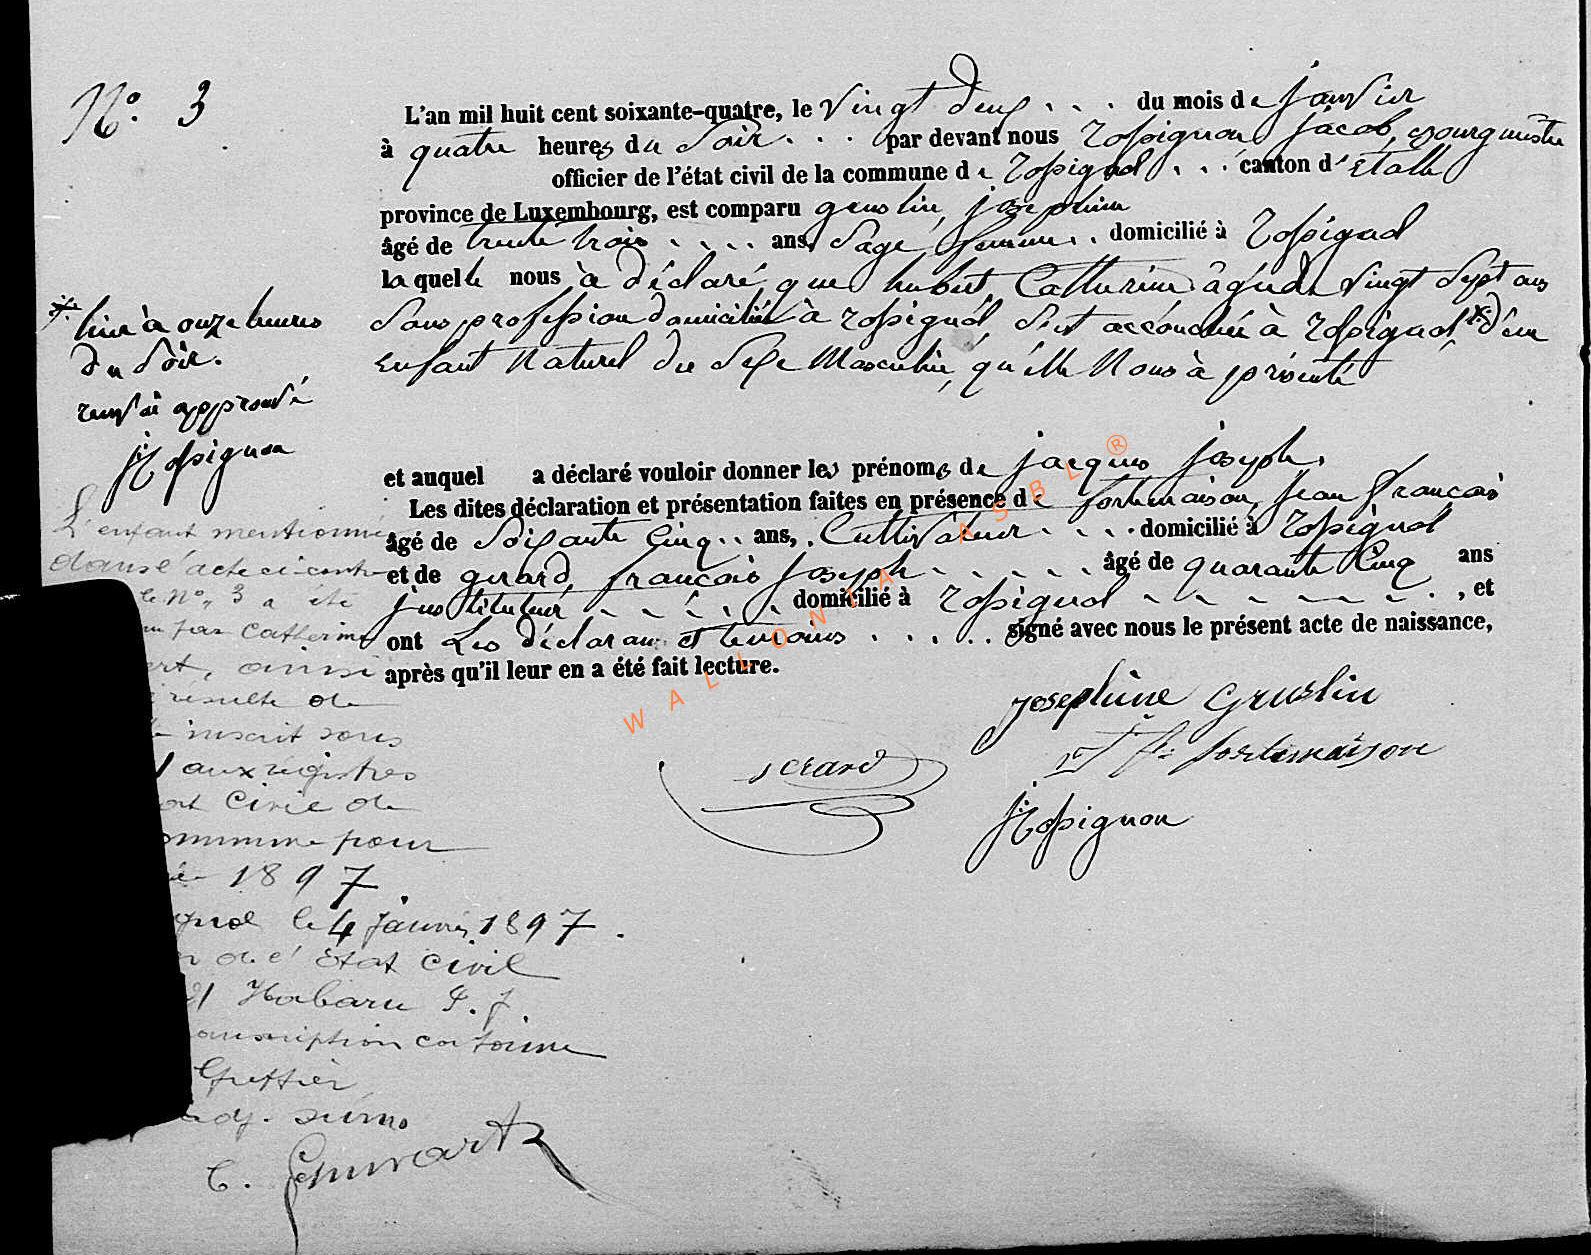 N° 3
L'an mil huit cent soixante-quatre, le Vingt deux du mois de janvier
à quatre heures du Soir par devant nous Rossignon jacob, Bourgmestre
officier de l'état civil de la commune de Rossignol canton d'Etalle
province de Luxembourg, est comparu gruslin, josephine
âgé de trente trois ans, Sage femme domicilié à Rossignol
laquelle nous à déclaré, que hubert Catherine âgée de Vingt Sept ans
Sans profession domiciliée à rossignol, S'est accouchée à Rossignol * d'un
Enfant Naturel du Sexe Masculin, qu'elle Nous à présenté
* hier à onze heures
du Soir.
renvoi approuvé
j Rossignon
et auquel a déclaré vouloir donner les prénoms de jacques joseph.
Les dites déclaration et présentation faites en présence de fortemaison, Jean françois
âgé de Soixante Cinq ans, Cultivateur domicilié à Rossignol
et de gerard, françois Joseph âgé de quarante Cinq ans
instituteur domicilié à Rossignol , et
ont Les déclarant et temoins signé avec nous le présent acte de naissance,
après qu'il leur en a été fait lecture.
Josephine Gruslin
J fs fortemaison
gerard
j Rossignon
L'enfant mentionné
dans l'acte ci-contre
le N° 3 a été
par Catherine
ert, ainsi
résulte de
inscrit sous
aux registres
at Civil de
ommune pour
ée 1897.
gnol le 4 janvier 1897.
de l'Etat civil
Habaru P. J.
anscription conforme
Greffier
adj. surn.
C. Schwartz
WALLONIA ASBL ®